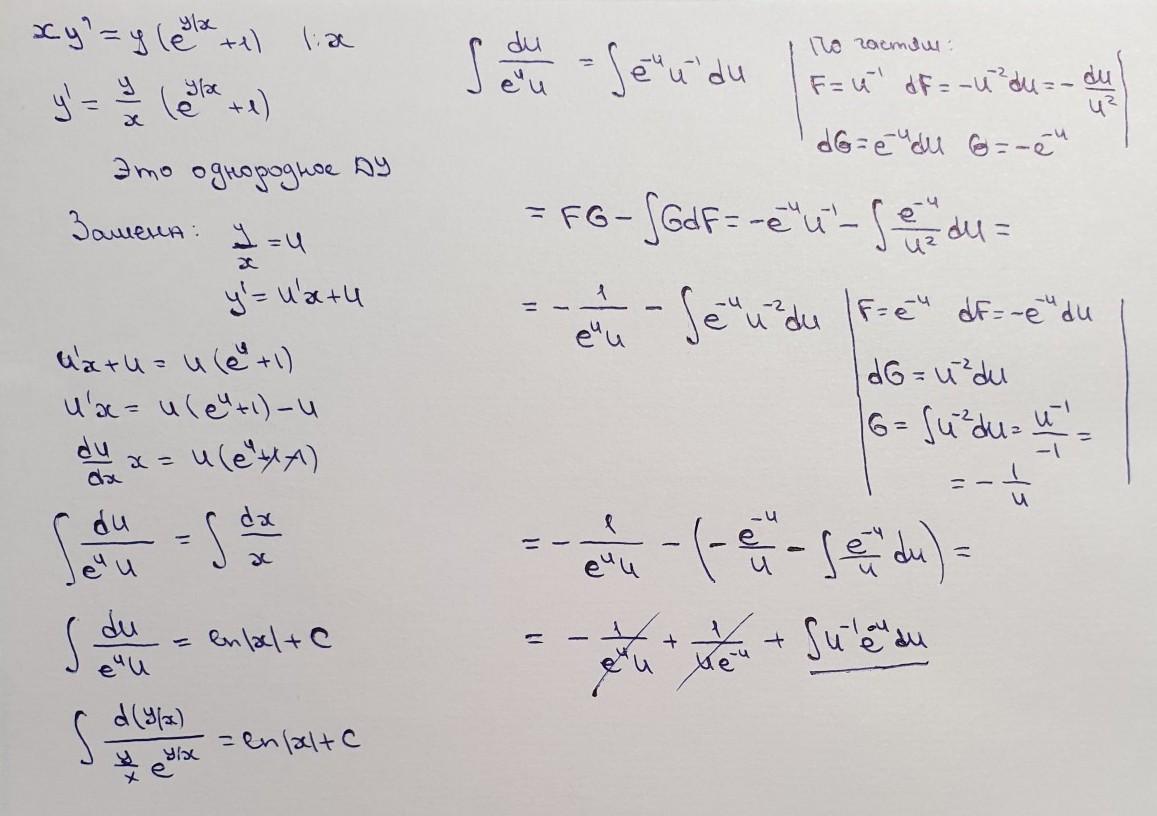 xy' = y(e^{y/x}+1)   |:x
y' = \frac{y}{x} (e^{y/x}+1)
Это однородное ДУ
Замена: \frac{y}{x} = u
y' = u'x+u
u'x+u = u(e^u+1)
u'x = u(e^u+1)-u
\frac{du}{dx} x = u(e^u+1-1)
∫\frac{du}{e^u u} = ∫\frac{dx}{x}
∫\frac{du}{e^u u} = ln|x|+C
∫\frac{d(y/x)}{\frac{y}{x} e^{y/x}} = ln|x|+C
∫\frac{du}{e^u u} = ∫e^{-u} u^{-1} du
По частям:
F=u^{-1}  dF=-u^{-2}du=-\frac{du}{u^2}
dG=e^{-u}du  G=-e^{-u}
= FG - ∫GdF = -e^{-u}u^{-1} - ∫\frac{e^{-u}}{u^2} du =
= -\frac{1}{e^u u} - ∫e^{-u}u^{-2}du
F=e^{-u}  dF=-e^{-u}du
dG=u^{-2}du
G=∫u^{-2}du=\frac{u^{-1}}{-1}=
=-\frac{1}{u}
= -\frac{1}{e^u u} - (-\frac{e^{-u}}{u} - ∫\frac{e^{-u}}{u} du) =
= -\frac{1}{e^u u} + \frac{1}{ue^{-u}} + ∫u^{-1}e^{-u}du